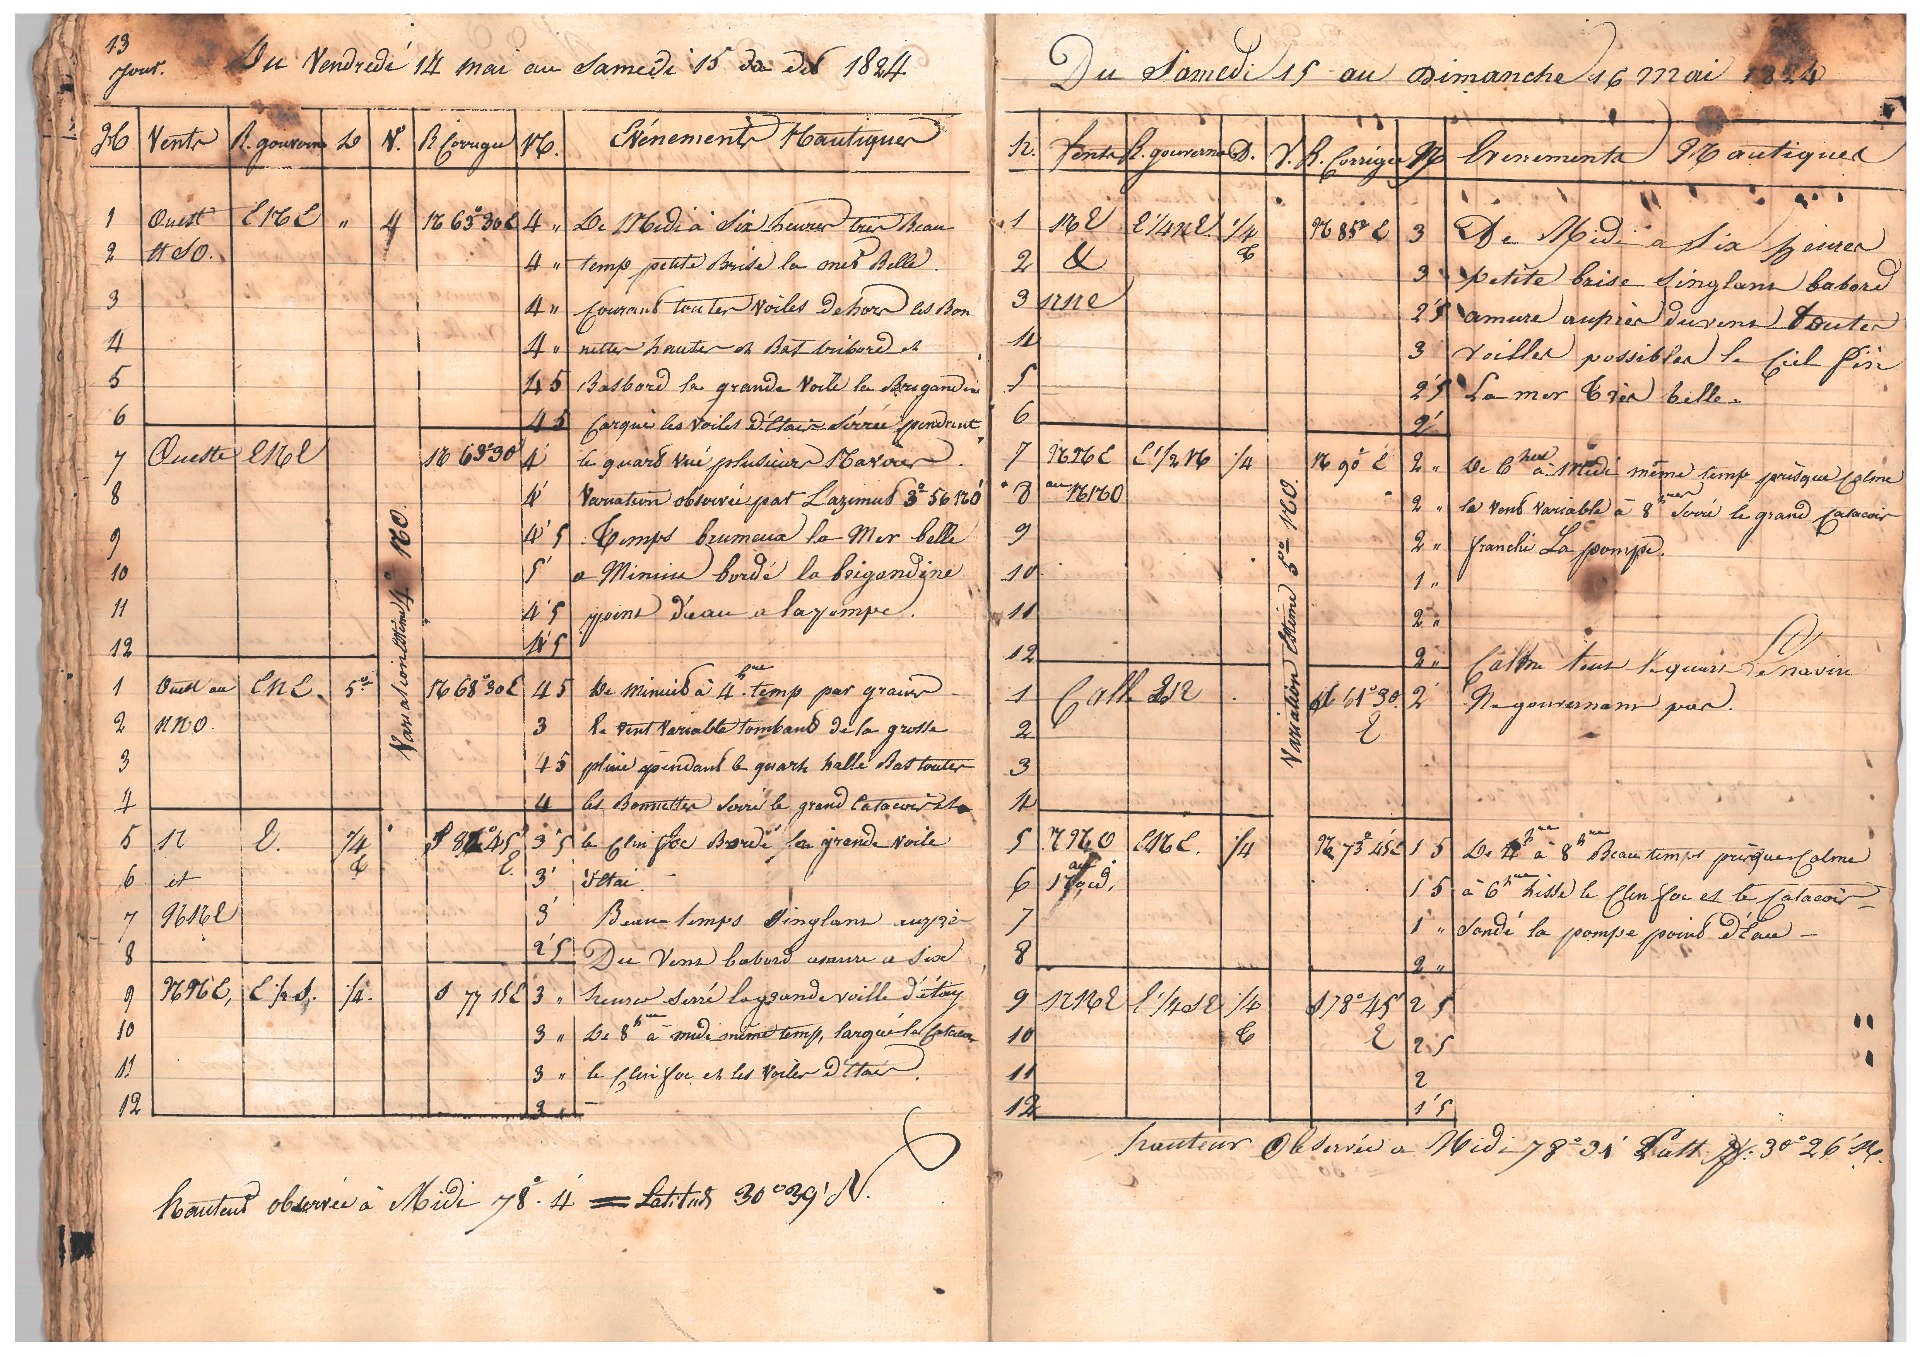 13
Jour.
Du Vendredi 14 mai au Samedi 15 de do 1824
H Vents R. gouverné D V. R Corrigée M. Evénements Nautiques
1 Ouest ENE " 4 N 63° 30 E 4 " De Midi à Six heures tres beau
2 et SO. 4 " temp petite Brise la mer Belle
3 4 " Courant toutes voiles dehors les Bon
4 4 " nettes hautes et Bas tribord et
5 4 5 Basbord la grande voile la Brigandine
6 4 5 Carqué les voiles d'Etai Sérrée pendant
7 Oueste ENE N 63° 30 4 le quard vue plusieurs Navires
8 4 Variation observée par Lazimud 3° 56 NO
9 4 5 Temps brumeux la Mer belle
10 5 a Minui bordé la brigandine
11 4 5 point d'eau a la pompe.
12 4 5
Variation Estimé 4° NO
1 Ouest au ENE 5° N 68° 30 E 4 5 De minuid à 4 hres temp par grains
2 NNO. 3 le vent variable tombant de la grosse
3 4 5 pluie pendant le quart hallé Bas toutes
4 4 les Bonnettes Serré le grand Catacoirs et
5 N E. 1/4 E S 86° 45' E 3 5 le Clin foc Bordé la grande voile
6 et 3 d'Etai
7 NNE 3 Beau temps Singlant auprè
8 2 5 Du Vent babord amure a Six
9 NNE, E 1/2 S. 1/4. S 77 15 E 3 " heures serré la grande voille d'étay
10 3 " De 8 hres à midi même temp, largué le Catacoi
11 3 " le Clin foc et les voiles d'Etai.
12 3 "
hauteur observée à Midi 78° 4 = Latitud 30° 39' N.
Du Samedi 15 au Dimanche 16 Mai 1824
h. Vents R. gouverné D. V. R. Corrigée M Evenements Nautiques
1 NE E 1/4 NE. 1/4 E N 85° E 3 De Midi a Six heures
2 & 3 petite brise Singlant babord
3 NNE 2 5 amure auprès du vent toutes
4 3 voilles possibles le Ciel fin
5 2 5 La mer Très belle.
6 2
7 NNE E 1/2 N 1/4 N 90° E 2 " De 6 hres à Midi même temp presque Calme
8 au NNO 2 " le vent variable à 8 hres Serré le grand Catacoir
9 2 " franchi La pompe.
10 1 "
11 2 "
12 2 " Calme tout le quart Le navire
Variation Estimé 5° NO.
1 Calle ESE S 61° 30 E 2 Ne gouvernant pas.
2
3
4
5 NNO ENE. 1/4 N 73° 45 E 1 5 De 4 h à 8 hres Beau temps presque Calme
6 au 1 5 à 6 hres hissé le Clin foc et le Catacoir
7 1 " Sondé la pompe poind d'Eau
8 2 "
9 NNE E 1/4 SE 1/4 E S 78° 45' E 2 5
10 2 5
11 2
12 1 5
hauteur Observée a Midi 78° 31' Latt N. 30° 26' N.